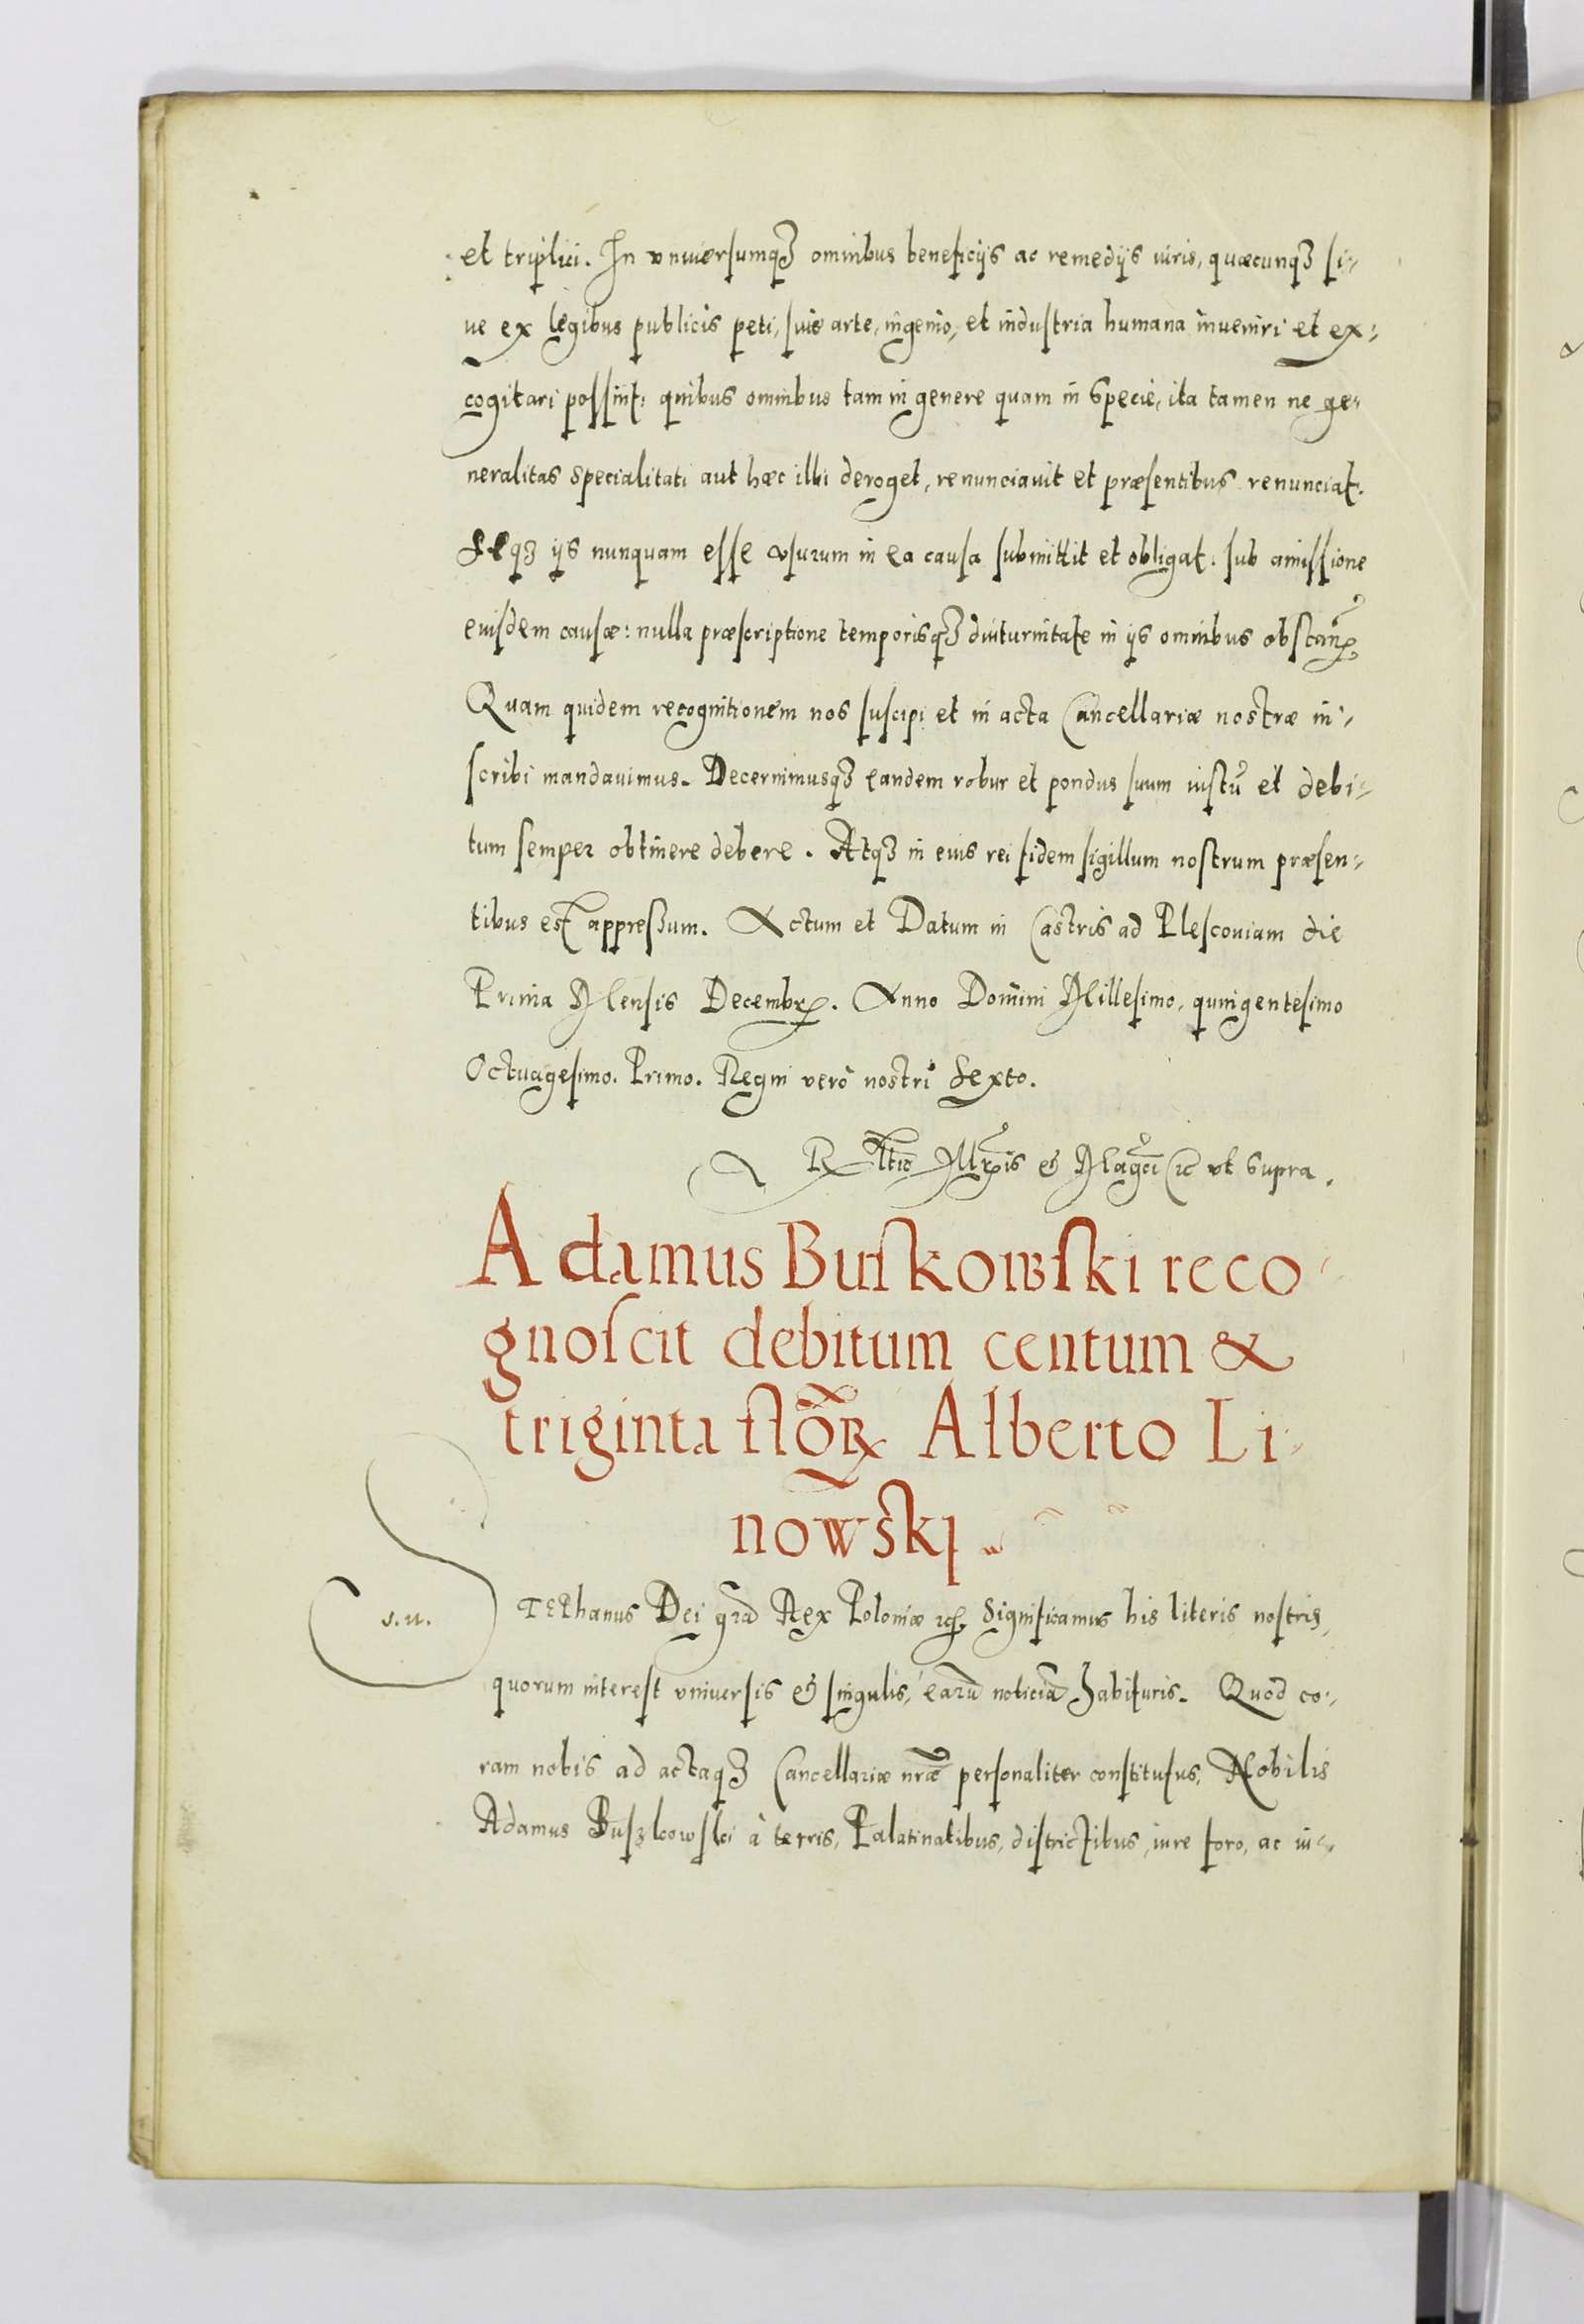 et triplici. In vniuersumqꝫ omnibus beneficijs ac remedijs iuris, quæcunqꝫ si-
ue ex legibus publicis peti, siue arte, ingenio, et industria humana inueniri et ex-
cogitari possint: quibus omnibus tam in genere quam in specie, ita tamen ne ge-
neralitas specialitati aut hæc illi deroget, renunciauit et præsentibus renunciat.
Seqꝫ ijs nunquam esse vsurum in ea causa submittit et obligat: sub amissione
eiusdem causæ: nulla præscriptione temporisqꝫ diuturnitate in ijs omnibus obstanꝭ
Quam quidem recognitionem nos suscipi et in acta Cancellariæ nostræ in-
scribi mandauimus. Decernimusqꝫ eandem robur et pondus suum iustũ et debi-
tum semper obtinere debere. Atqꝫ in eius rei fidem sigillum nostrum præsen-
tibus est appressum. Actum et Datum in Castris ad Plescouiam die
Prima Mensis Decembrꝭ. Anno Domini Millesimo, quingentesimo
Octuagesimo. Primo. Regni verò nostri Sexto.
ut supra.
Adamus Buskowski reco-
gnoscit debitum centum &
triginta flõꝝ Alberto Li-
nowski.
s. n.
Stephanus Dei grã Rex Poloniæ ꝛcꝭ Significamus his literis nostris,
quorum interest vniuersis & singulis, earũ noticiã habituris. Quod co-
ram nobis ad actaqꝫ Cancellariæ nrãe personaliter constitutus, Nobilis
Adamus Buszkowski à terris, Palatinatibus, districtibus, iure foro, ac iu-